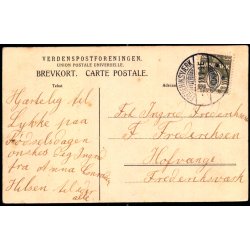 VERDENSPOSTFORENINGEN.
UNION POSTALE UNIVERSELLE.
BREVKORT. CARTE POSTALE.
Tekst
Adresse
Hjertelig til
Lykke paa
Fødselsdagen
ønskes Dig Ingrid
fra Anna
Hilsen til
alle
Frk Ingrid Frederiksen
F. Frederiksen
Hofvange
Frederiksværk